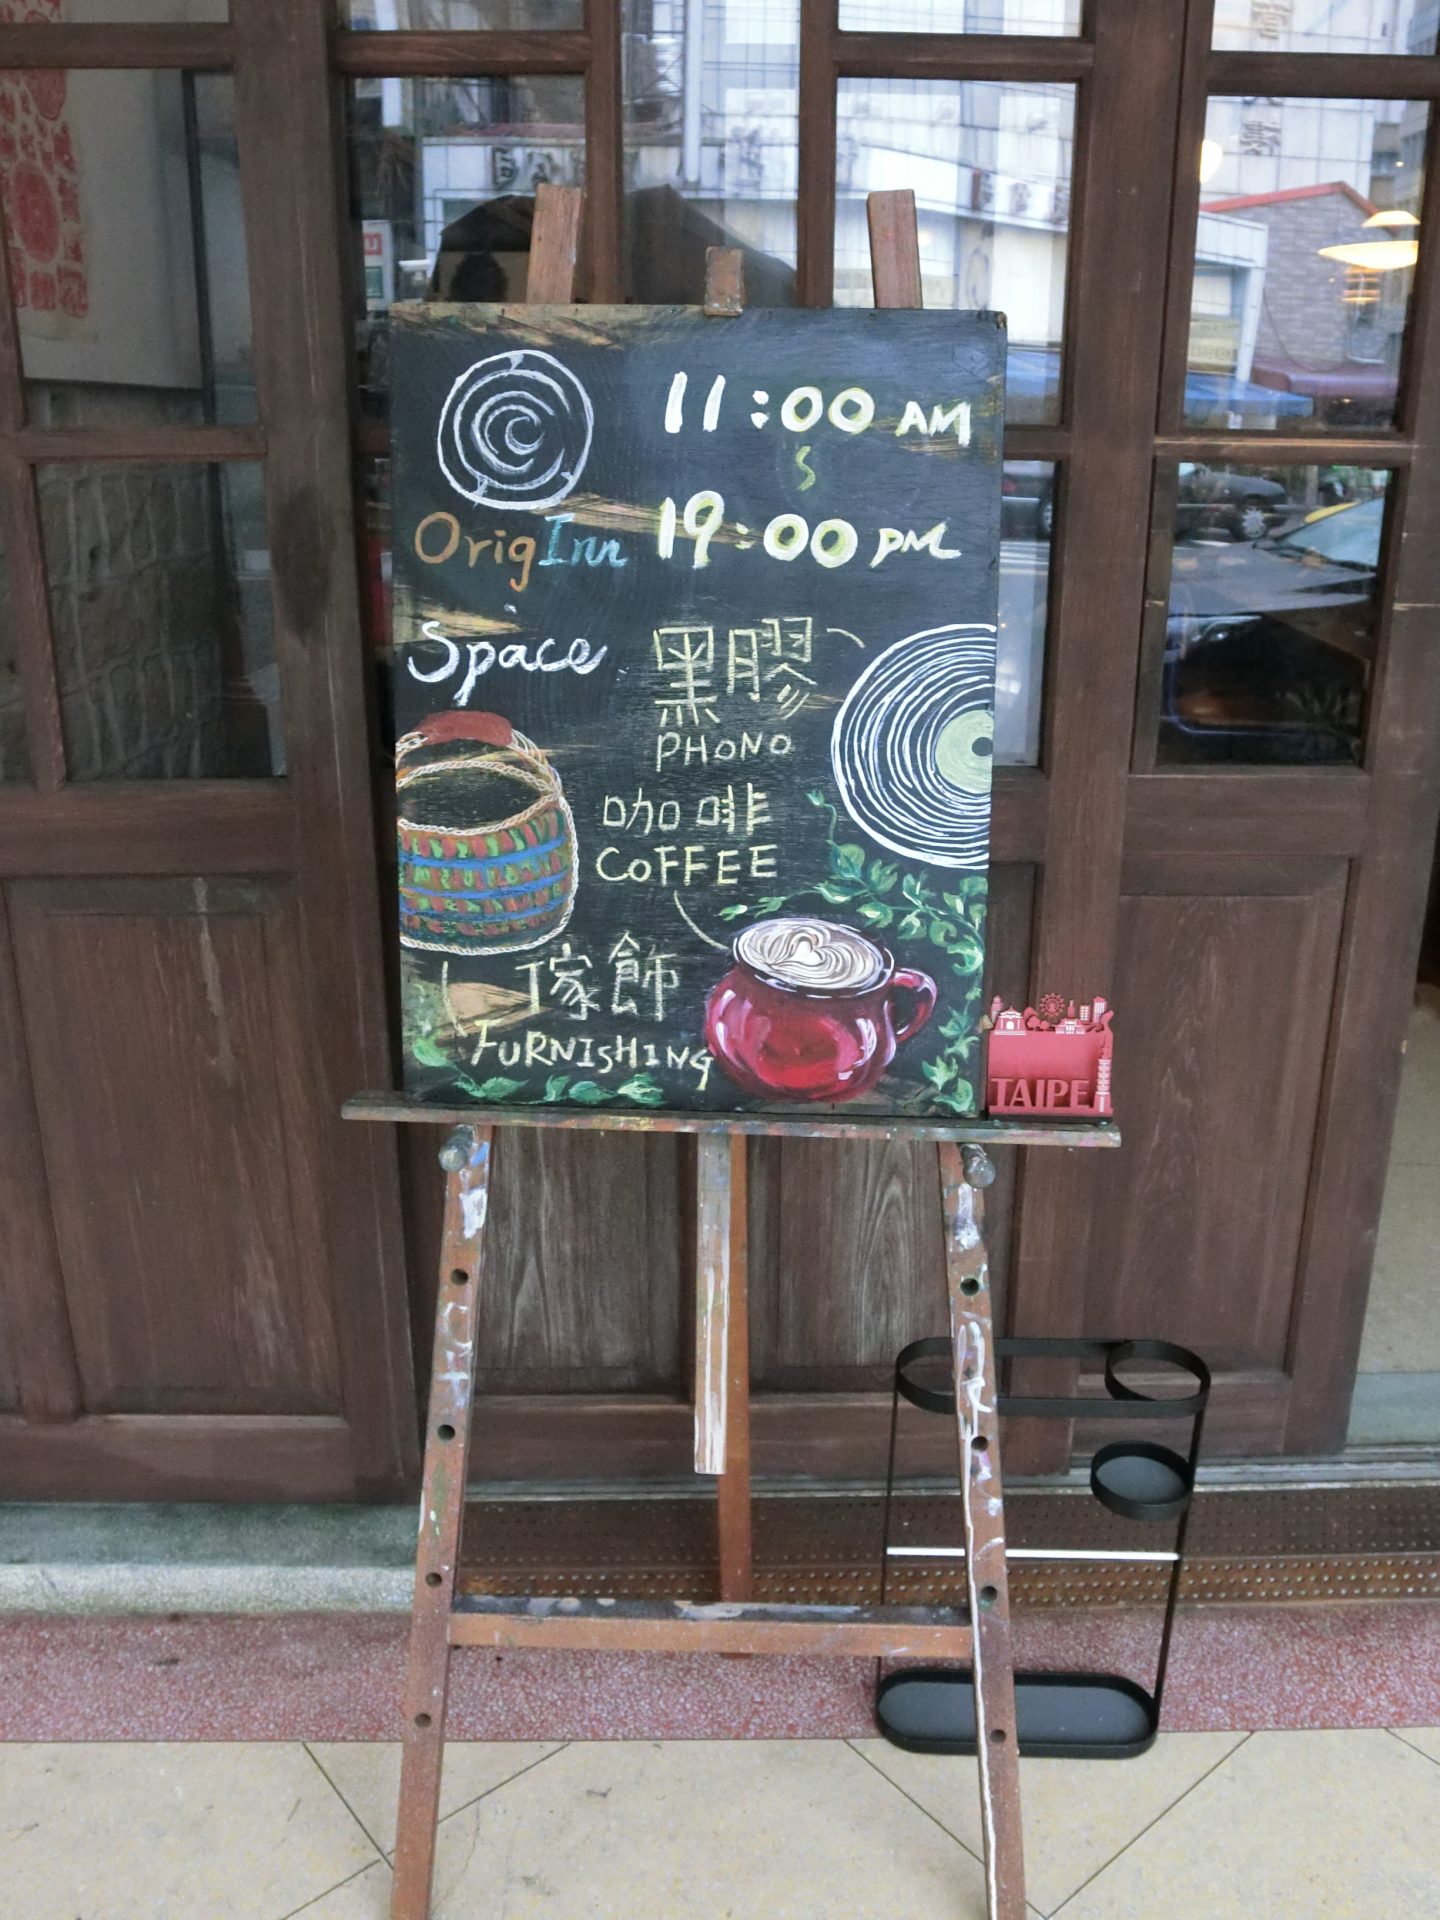 11:00 AM
19:00 PM
OrigInn
Space
黑膠
PHONO
咖啡
COFFEE
傢飾
FURNISHING
TAIPEI